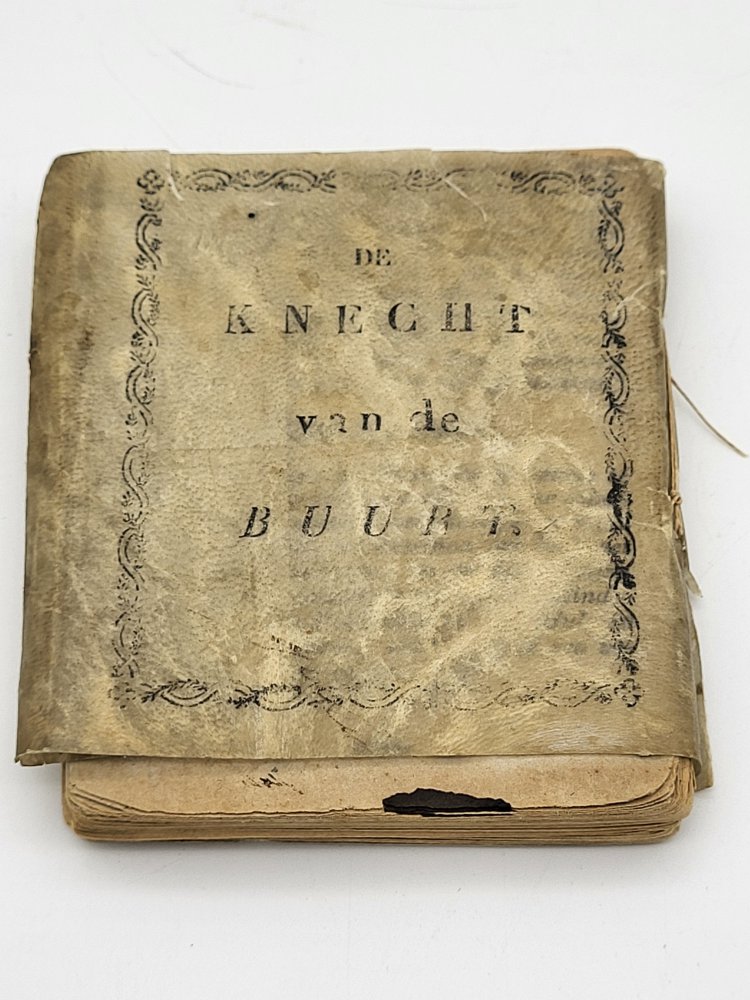 DE
KNECHT
van de
BUURT.